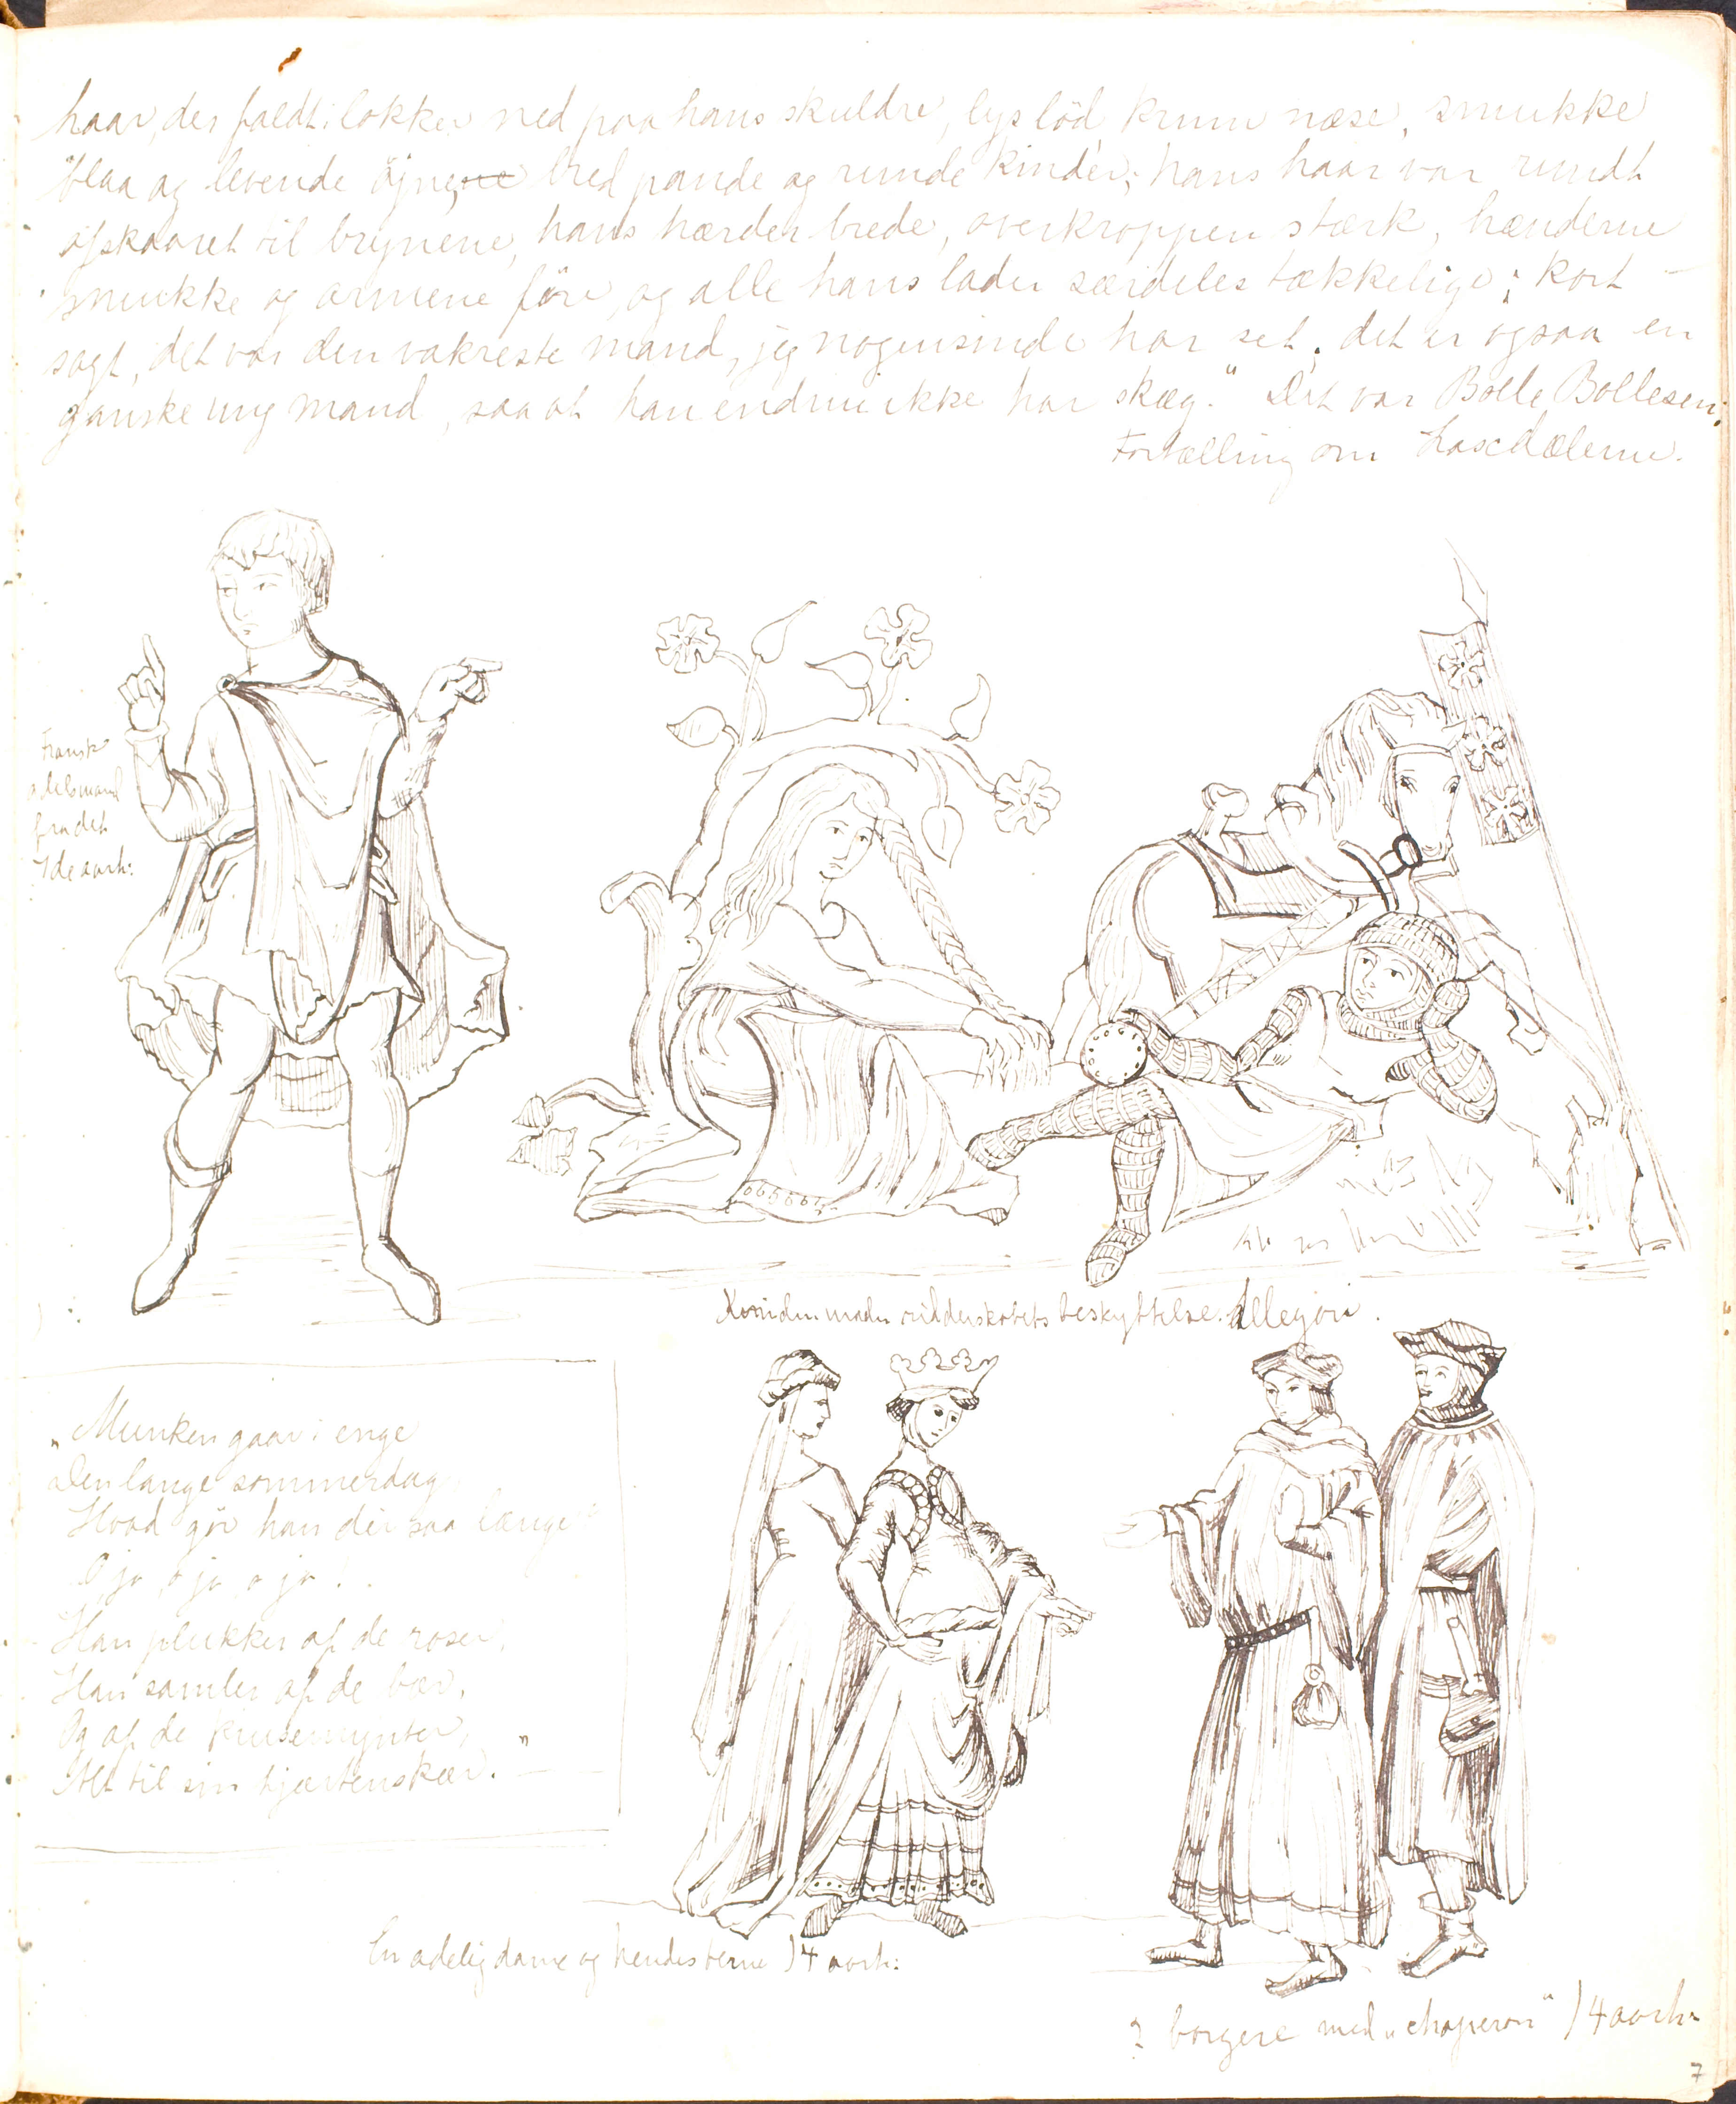 haar, der faldt i lokker ned paa hans skuldre, lys löd krum næse, smukke
blaa og levende öjne, bred pande og runde kinder; hans haar var rundt
afskaaret til brynene, hans hærder brede, overkroppen stærk, hænderne
smukke og armene före, og alle hans lader særdeles tækkelige; kort
sagt, det var den vakreste mand, jeg nogensinde har set; det er ogsaa en
ganske ung mand, saa at han endnu ikke har skæg." Det var Bolle Bollesen.
Fortælling om Laxdælerne.
Fransk
adelsmand
fra det
7de aarh:
Kvinden under ridderskabets beskyttelse. Allegori.
"Munken gaar i enge
Den lange sommerdag
Hvad gör han der saa længe
O, ja, o ja o ja!
Han plukker af de roser,
Han samler af de bær,
Og af de krusemynter,
Alt til sin hjærtenskær."
En adelig dame og hendes terne 14 aarh:
2 borgere med "chaperon" 14 aarh:
7